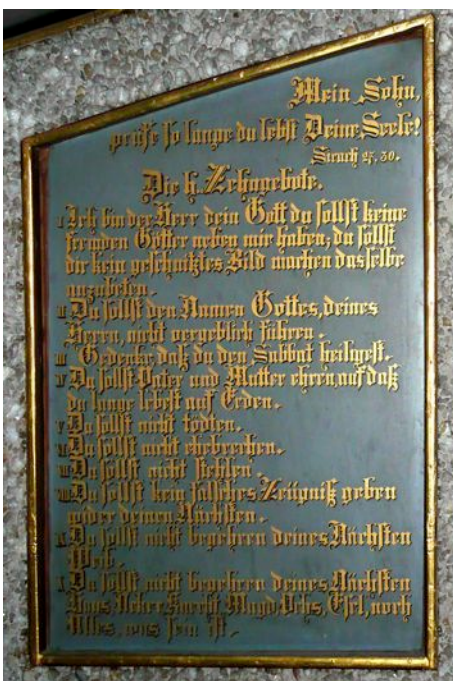 Mein Sohn,
prüfe so lange du lebst Deine Seele!
Sirach 27, 30.
Die h. Zehngebote.
I Ich bin der Herr dein Gott du sollst keine
fremden Götter neben mir haben; du sollst
dir kein geschnitztes Bild machen dasselbe
anzubeten.
II Du sollst den Namen Gottes, deines
Herren, nicht vergeblich führen.
III Gedenke daß du den Sabbat heiligest.
IV Du sollst Vater und Mutter ehren, auf daß
du lange lebest auf Erden.
V Du sollst nicht tödten.
VI Du sollst nicht ehebrechen.
VII Du sollst nicht stehlen.
VIII Du sollst kein falsches Zeügniß geben
wider deinen Nächsten.
IX Du sollst nicht begehren deines Nächsten
Weib.
X Du sollst nicht begehren deines Nächsten
Haus, Acker, Knecht, Magd, Ochs, Esel, noch
Alles, was sein ist.